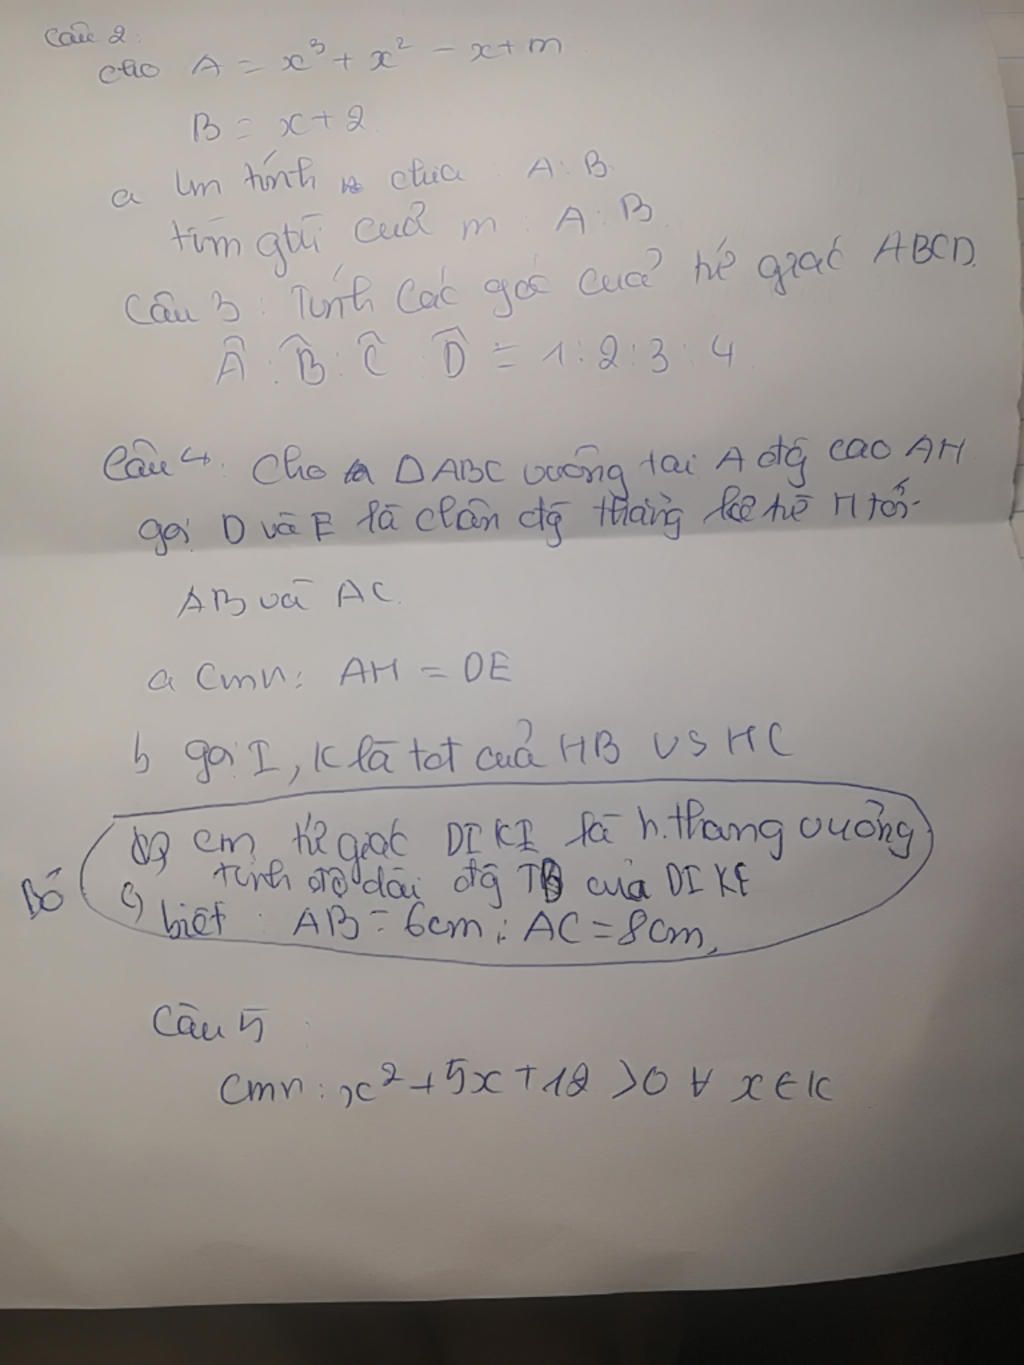 Câu 2:
cho A = x³ + x² - x + m
B = x + 2
a tính chia A : B
tìm gtri cuả m : A : B
Câu 3 : Tính các góc cuả tứ giác ABCD.
Â : B̂ : Ĉ D̂ = 1 : 2 : 3 : 4
Câu 4 : Cho Δ ABC vuông tại A đg cao AH
gọi D và E là chân đg thẳng kẻ từ H tới
AB và AC.
a Cmr: AH = DE
b gọi I, K là tđt cuả HB VS HC
cm tứ giác DIKE là h.thang vuông
Bỏ c, tính độ dài đg TB của DIKE
biết : AB = 6cm ; AC = 8cm.
Câu 5 :
Cmr : x² + 5x + 12 > 0 ∀ x ∈ K